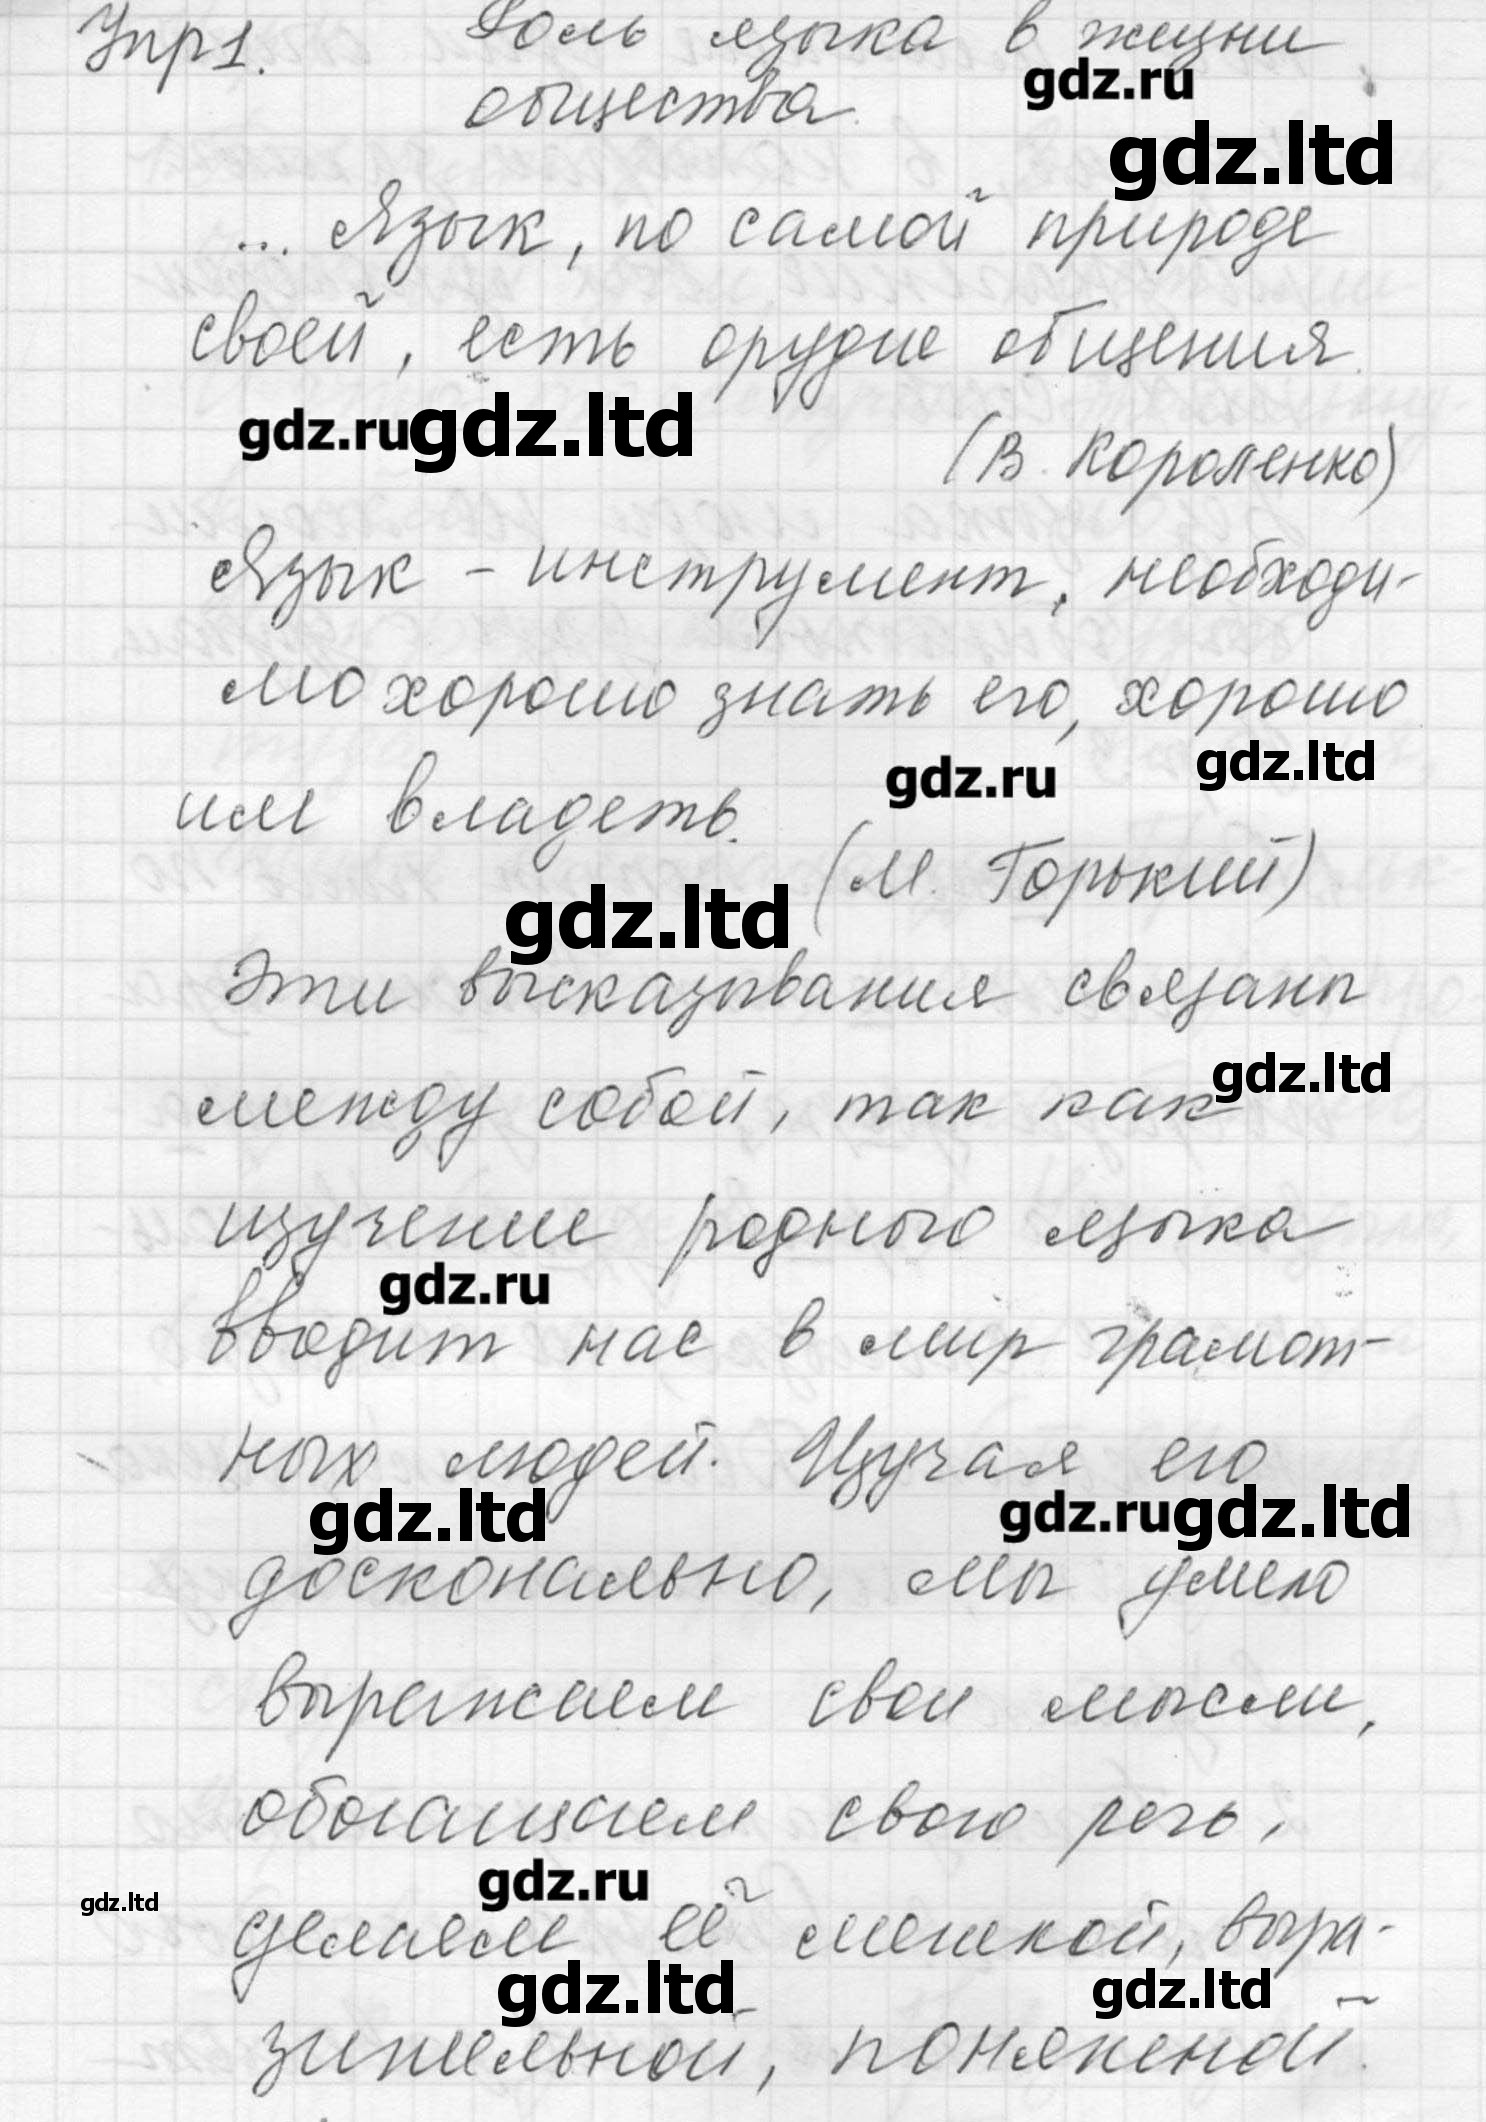 Упр1. Роль языка в жизни
gdz.ru
общества.
gdz.ltd
... Язык, по самой природе
своей, есть орудие общения.
gdz.ru gdz.ltd
(В. Короленко)
Язык – инструмент, необходи-
мо хорошо знать его, хорошо
gdz.ru gdz.ltd
им владеть.
(М. Горький)
gdz.ltd
Эти высказывания связаны
gdz.ltd
между собой, так как
изучение родного языка
gdz.ru
вводит нас в мир грамот-
ных людей. Изучая его
gdz.ltd gdz.ru gdz.ltd
досконально, мы умело
выражаем свои мысли,
обогащаем свою речь,
gdz.ru
gdz.ltd
делаем её меткой, выра-
gdz.ltd gdz.ltd
зительной,